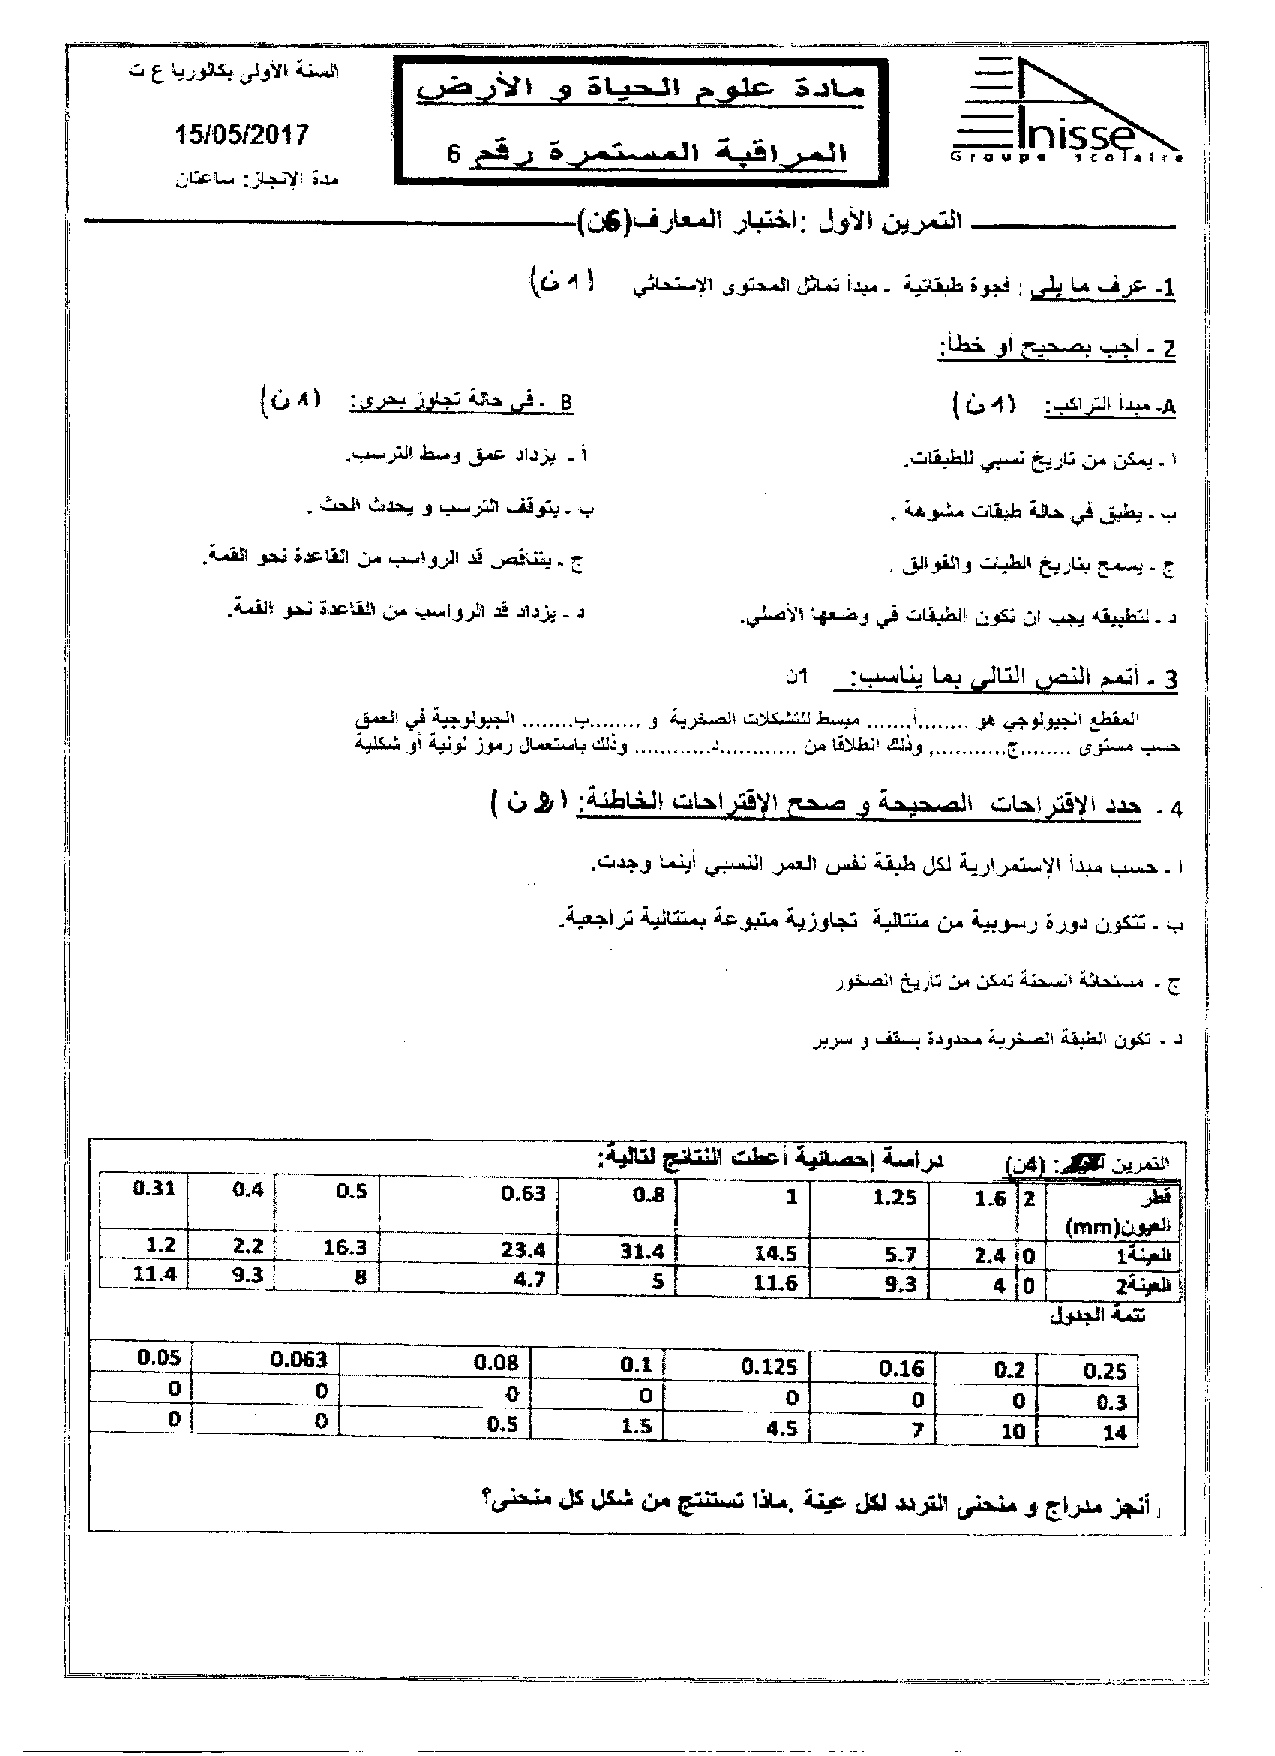 السنة الأولى بكالوريا ع ت
مادة علوم الحياة و الأرض
Anisse
Groupe scolaire
15/05/2017
المراقبة المستمرة رقم 6
مدة الإنجاز: ساعتان
التمرين الأول :اختبار المعارف(6ن)
1- عرف ما يلي : فجوة طبقاتية - مبدأ تماثل المحتوى الإستحاثي (1 ن)
2 - أجب بصحيح أو خطأ:
A- مبدأ التراكب: (1 ن)
أ - يمكن من تاريخ نسبي للطبقات.
ب - يطبق في حالة طبقات مشوهة .
ج - يسمح بتاريخ الطيات و الفوالق .
د - لتطبيقه يجب ان تكون الطبقات في وضعها الأصلي.
B - في حالة تجاوز بحري: (1 ن)
أ - يزداد عمق وسط الترسب.
ب - يتوقف الترسب و يحدث الحث .
ج - يتناقص قد الرواسب من القاعدة نحو القمة.
د - يزداد قد الرواسب من القاعدة نحو القمة.
3 - أتمم النص التالي بما يناسب: 1ن
المقطع الجيولوجي هو ........أ....... مبسط للتشكلات الصخرية و ........ب........ الجيولوجية في العمق
حسب مستوى ........ج...........، وذلك انطلاقا من ............د............ وذلك باستعمال رموز لونية أو شكلية
4 - حدد الإقتراحات الصحيحة و صحح الإقتراحات الخاطئة: ( ن )
أ - حسب مبدأ الإستمرارية لكل طبقة نفس العمر النسبي أينما وجدت.
ب - تتكون دورة رسوبية من متتالية تجاوزية متبوعة بمتتالية تراجعية.
ج - مستحاثة السحنة تمكن من تاريخ الصخور
د - تكون الطبقة الصخرية محدودة بسقف و سرير
التمرين : (4ن) دراسة إحصائية أعطت النتائج لتالية:
قطر العيون(mm) 2 1.6 1.25 1 0.8 0.63 0.5 0.4 0.31
العينة1 0 2.4 5.7 14.5 31.4 23.4 16.3 2.2 1.2
العينة2 0 4 9.3 11.6 5 4.7 8 9.3 11.4
تتمة الجدول
0.25 0.2 0.16 0.125 0.1 0.08 0.063 0.05
0.3 0 0 0 0 0 0 0
14 10 7 4.5 1.5 0.5 0 0
أنجز مدراج و منحنى التردد لكل عينة .ماذا تستنتج من شكل كل منحنى؟